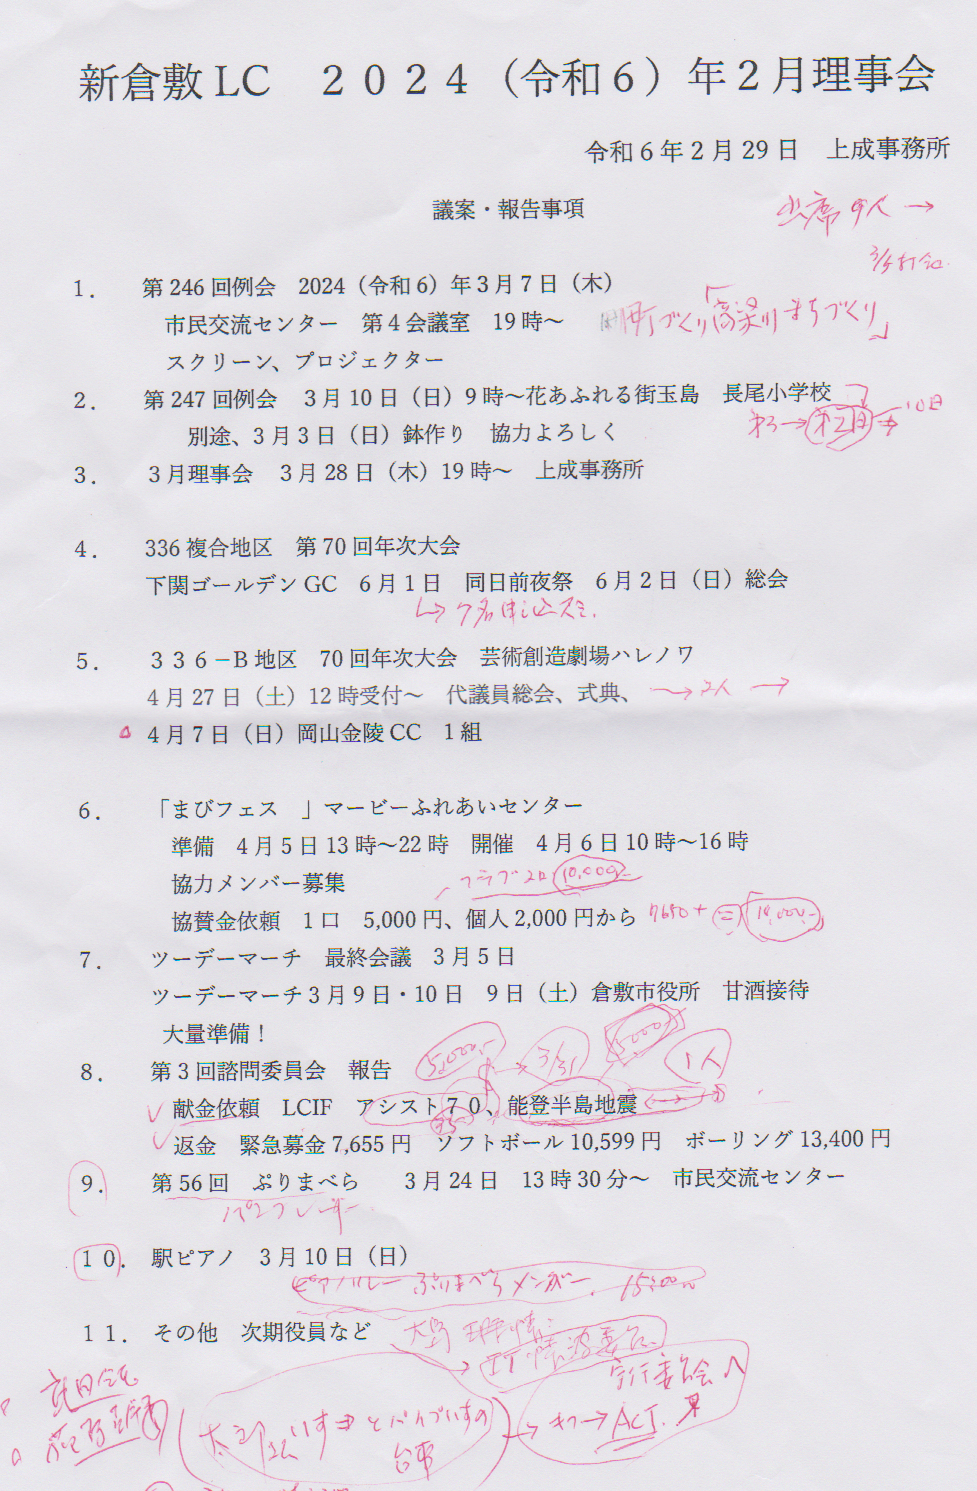 新倉敷LC　２０２４（令和６）年２月理事会
令和６年２月29日　上成事務所
議案・報告事項
出席 9人 →
１．　第246回例会　2024（令和6）年３月７日（木）
市民交流センター　第４会議室　19時～
町づくり「高梁川まちづくり」
スクリーン、プロジェクター
２．　第247回例会　３月10日（日）9時～花あふれる街玉島　長尾小学校
別途、３月３日（日）鉢作り　協力よろしく
３．　３月理事会　３月28日（木）19時～　上成事務所
４．　336複合地区　第70回年次大会
下関ゴールデンGC　６月１日　同日前夜祭　６月２日（日）総会
７名申込
５．　３３６－B地区　70回年次大会　芸術創造劇場ハレノワ
４月27日（土）12時受付～　代議員総会、式典、 → 2人 →
４月７日（日）岡山金陵CC　１組
６．　「まびフェス　」マービーふれあいセンター
準備　４月５日13時～22時　開催　４月６日10時～16時
協力メンバー募集
クラブ2口 10,000-
協賛金依頼　１口　5,000円、個人2,000円から
７．　ツーデーマーチ　最終会議　３月５日
ツーデーマーチ３月９日・10日　９日（土）倉敷市役所　甘酒接待
大量準備！
5,000.- → 3/31 5,000 1人
８．　第３回諮問委員会　報告
献金依頼　LCIF　アシスト７０、能登半島地震
返金　緊急募金7,655円　ソフトボール10,599円　ボーリング13,400円
９．　第56回　ぷりまべら　　３月24日　13時30分～　市民交流センター
１０．　駅ピアノ　３月10日（日）
ピアノリレー ぷりまべらメンバー 15:00～
１１．　その他　次期役員など
実行委員会
いす とパイプいすの
台車
→ ACT.